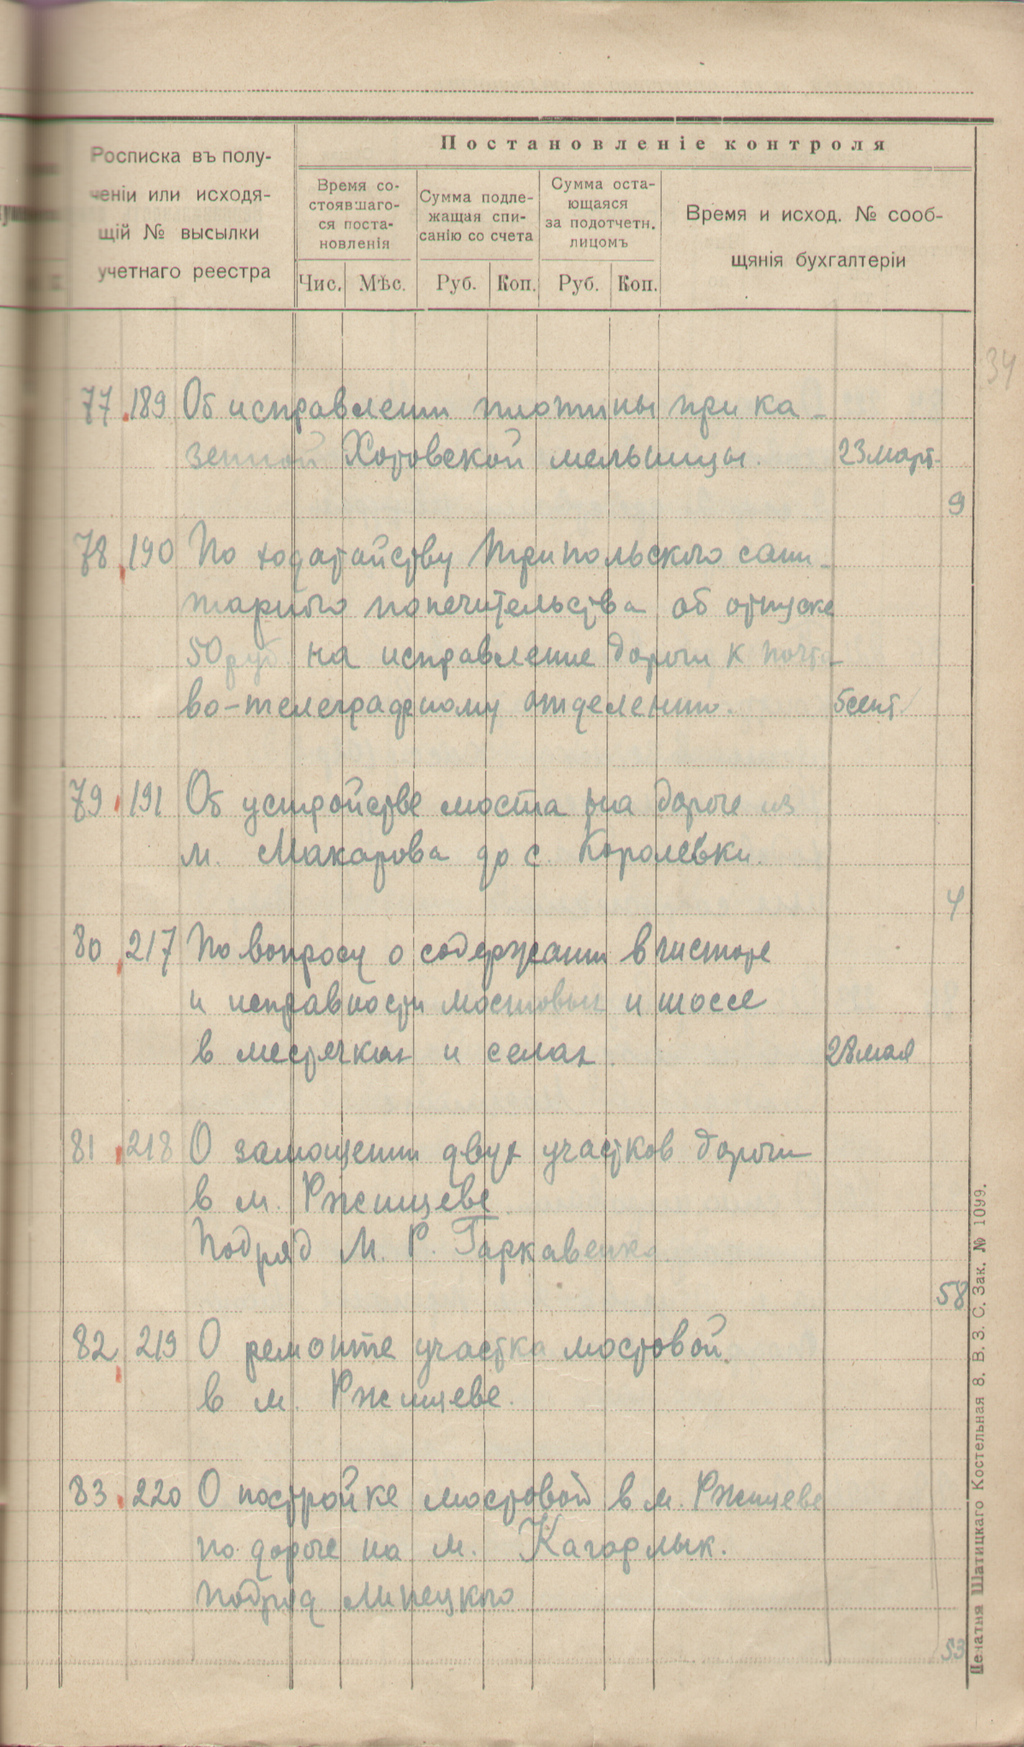 Росписка въ полу-
ченіи или исходя-
щій № высылки
учетнаго реестра
Постановленіе контроля
Время со-
стоявшаго-
ся поста-
новленія
Сумма подле-
жащая спи-
санію со счета
Сумма оста-
ющаяся
за подотчетн.
лицомъ
Время и исход. № сооб-
щянія бухгалтеріи
Чис. Мѣс. Руб. Коп. Руб. Коп.
34
77 189 Об исправлении плотины при ка-
зенной Хотовской мельницы. 23 март.
9
78 190 По ходатайству Трипольского сани-
тарного попечительства об отпуске
50 руб на исправление дороги к почто-
во-телеграфному отделению. 5 сент.
79 191 Об устройстве моста на дороге из
м. Макарова до с. Королевки.
4
80 217 По вопросу о содержании в чистоте
и исправности мостовых и шоссе
в местечках и селах. 28 мая
81 218 О замощении двух участков дороги
в м. Ржищеве
Подряд М. Р. Гаркавенко
58
82 219 О ремонте участка мостовой
в м. Ржищеве.
83 220 О постройке мостовой в м. Ржищеве
по дороге на м. Кагарлык.
Подряд Липецкого
53
Печатня Шатицкаго Костельная 8. В. З. С. Зак. № 1099.